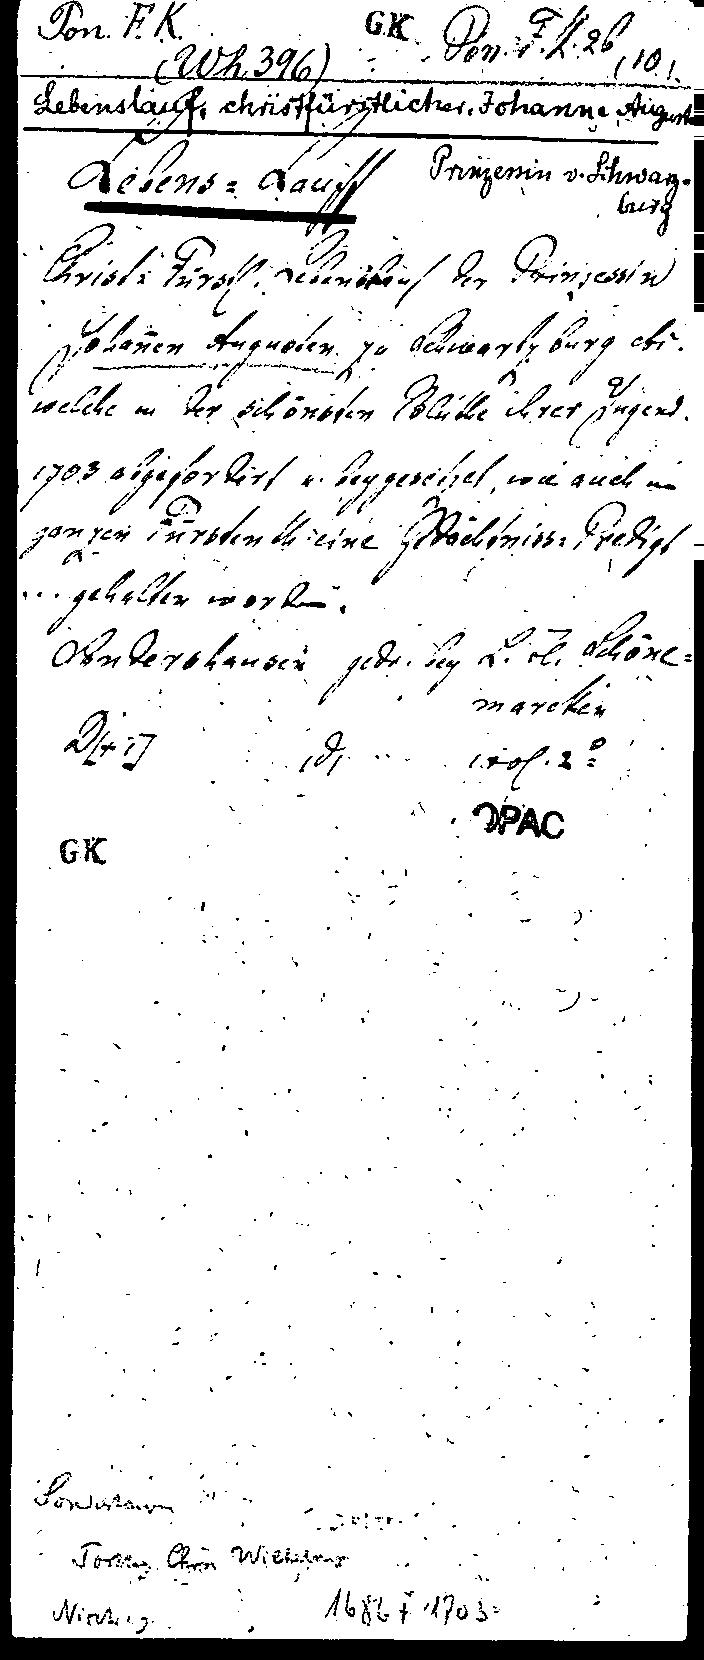 Pon. F. K. GK Pon. F. K. 26
(Wh 396) (10).
Lebenslauf, christfürstlicher, Johanne August
Lebens = Lauff Prinzessin v. Schwarz-
burg
Christ = Fürstl. Lebenslauf der Prinzessin
Johannen Augusten zu Schwartzburg etc.
welche in der schönsten Blüthe ihrer Jugend
1703 abgefordert u. beygesetzet, wie auch im
ganzen Fürstenth. eine Gedächtniss = Predigt
... gehalten worden.
Sondershausen gedr. bey L. H. Schöne =
marcken
2°
OPAC
GK
Wilhelm
1686 † 1703